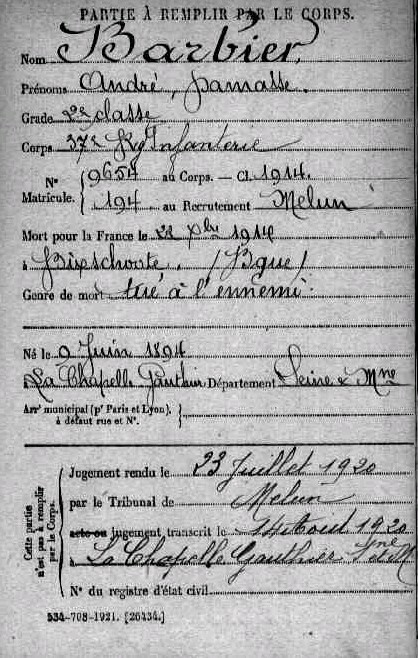 PARTIE À REMPLIR PAR LE CORPS.
Nom Barbier,
Prénoms André, Parnasse.
Grade 2e classe
Corps 37e Rg Infanterie
N° Matricule. { 9654 au Corps. — Cl. 1914.
194 au Recrutement Melun
Mort pour la France le 22 Xbre 1914
à Bixschoote. (Bque)
Genre de mort tué à l'ennemi.
Né le 9 Juin 1894
à La Chapelle Gauthier Département Seine & Mne
Arrt municipal (pr Paris et Lyon), à défaut rue et N°. }
Cette partie n'est pas à remplir par le Corps.
Jugement rendu le 23 Juillet 1920
par le Tribunal de Melun
acte ou jugement transcrit le 14 Aout 1920
à La Chapelle Gauthier Sne et M
N° du registre d'état civil
534-708-1921. [26434.]